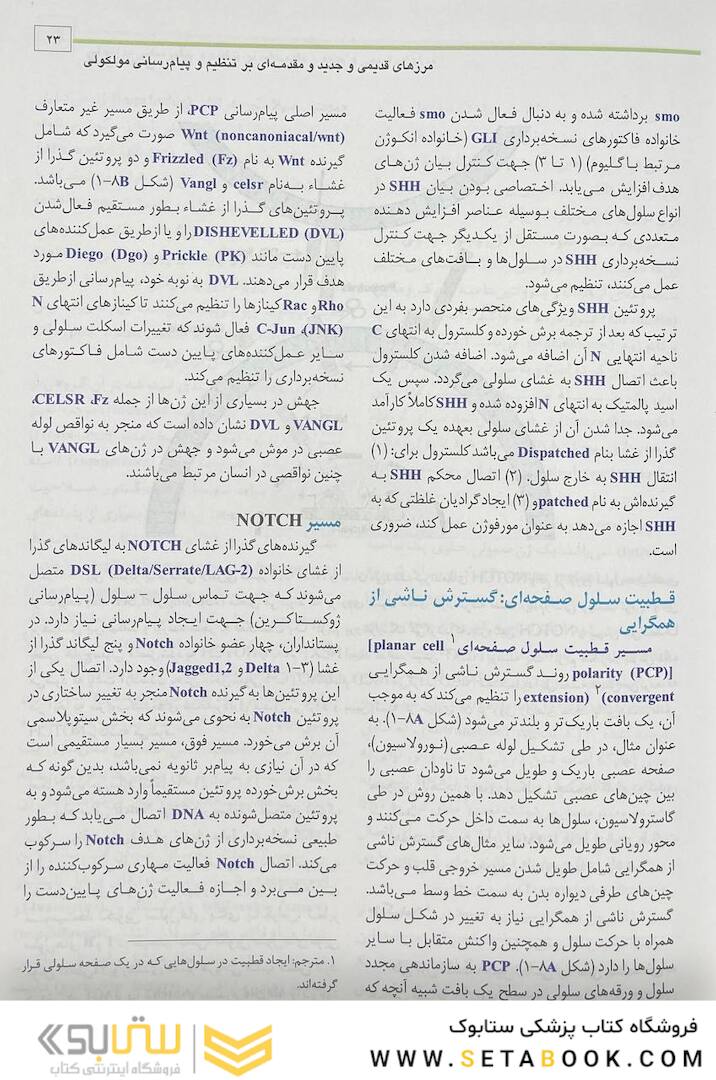 ۲۳
مرزهای قدیمی و جدید و مقدمه‌ای بر تنظیم و پیام‌رسانی مولکولی
smo برداشته شده و به دنبال فعال شدن smo فعالیت
خانواده فاکتورهای نسخه‌برداری GLI (خانواده انکوژن
مرتبط با گلیوم) (۱ تا ۳) جهت کنترل بیان ژن‌های
هدف افزایش می‌یابد. اختصاصی بودن بیان SHH در
انواع سلول‌های مختلف بوسیله عناصر افزایش دهنده
متعددی که بصورت مستقل از یکدیگر جهت کنترل
نسخه‌برداری SHH در سلول‌ها و بافت‌های مختلف
عمل می‌کنند، تنظیم می‌شود.
پروتئین SHH ویژگی‌های منحصر بفردی دارد به این
ترتیب که بعد از ترجمه برش خورده و کلسترول به انتهای C
ناحیه انتهایی N آن اضافه می‌شود. اضافه شدن کلسترول
باعث اتصال SHH به غشای سلولی می‌گردد. سپس یک
اسید پالمتیک به انتهای N افزوده شده و SHH کاملاً کارآمد
می‌شود. جدا شدن آن از غشای سلولی بعهده یک پروتئین
گذرا از غشا بنام Dispatched می‌باشد کلسترول برای: (۱)
انتقال SHH به خارج سلول. (۲) اتصال محکم SHH به
گیرنده‌اش به نام patched و (۳) ایجاد گرادیان غلظتی که به
SHH اجازه می‌دهد به عنوان مورفوژن عمل کند، ضروری
است.
قطبیت سلول صفحه‌ای: گسترش ناشی از
همگرایی
مسیر قطبیت سلول صفحه‌ای۱ [planar cell
polarity (PCP)] روند گسترش ناشی از همگرایی
(convergent۲ extension) را تنظیم می‌کند که به موجب
آن، یک بافت باریک‌تر و بلندتر می‌شود (شکل ۸A-۱). به
عنوان مثال، در طی تشکیل لوله عصبی (نورولاسیون)،
صفحه عصبی باریک و طویل می‌شود تا ناودان عصبی را
بین چین‌های عصبی تشکیل دهد. با همین روش در طی
گاسترولاسیون، سلول‌ها به سمت داخل حرکت می‌کنند و
محور رویانی طویل می‌شود. سایر مثال‌های گسترش ناشی
از همگرایی شامل طویل شدن مسیر خروجی قلب و حرکت
چین‌های طرفی دیواره بدن به سمت خط وسط می‌باشد.
گسترش ناشی از همگرایی نیاز به تغییر در شکل سلول
همراه با حرکت سلول و همچنین واکنش متقابل با سایر
سلول‌ها را دارد (شکل ۸A-۱). PCP به سازماندهی مجدد
سلول و ورقه‌های سلولی در سطح یک بافت شبیه آنچه که
مسیر اصلی پیام‌رسانی PCP، از طریق مسیر غیر متعارف
Wnt (noncanoniacal/wnt) صورت می‌گیرد که شامل
گیرنده Wnt به نام Frizzled (Fz) و دو پروتئین گذرا از
غشاء به‌نام celsr و Vangl (شکل ۸B-۱) می‌باشد.
پروتئین‌های گذرا از غشاء بطور مستقیم فعال‌شدن
DISHEVELLED (DVL) را و یا از طریق عمل‌کننده‌های
پایین دست مانند Prickle (PK) و Diego (Dgo) مورد
هدف قرار می‌دهند. DVL به نوبه خود، پیام‌رسانی ازطریق
Rho و Rac کینازها را تنظیم می‌کنند تا کینازهای انتهای N
C-Jun (JNK)، فعال شوند که تغییرات اسکلت سلولی و
سایر عمل‌کننده‌های پایین دست شامل فاکتورهای
نسخه‌برداری را تنظیم می‌کند.
جهش در بسیاری از این ژن‌ها از جمله CELSR، Fz،
VANGL و DVL نشان داده است که منجر به نواقص لوله
عصبی در موش می‌شود و جهش در ژن‌های VANGL با
چنین نواقصی در انسان مرتبط می‌باشند.
مسیر NOTCH
گیرنده‌های گذرا از غشای NOTCH به لیگاندهای گذرا
از غشای خانواده DSL (Delta/Serrate/LAG-2) متصل
می‌شوند که جهت تماس سلول – سلول (پیام‌رسانی
ژوکستاکرین) جهت ایجاد پیام‌رسانی نیاز دارد. در
پستانداران، چهار عضو خانواده Notch و پنج لیگاند گذرا از
غشا (Delta ۱-۳ و Jagged1,2) وجود دارد. اتصال یکی از
این پروتئین‌ها به گیرنده Notch منجر به تغییر ساختاری در
پروتئین Notch به نحوی می‌شوند که بخش سیتوپلاسمی
آن برش می‌خورد. مسیر فوق، مسیر بسیار مستقیمی است
که در آن نیازی به پیام‌بر ثانویه نمی‌باشد، بدین گونه که
بخش برش‌خورده پروتئین مستقیماً وارد هسته می‌شود و به
پروتئین متصل‌شونده به DNA اتصال می‌یابد که بطور
طبیعی نسخه‌برداری از ژن‌های هدف Notch را سرکوب
می‌کند. اتصال Notch فعالیت مهاری سرکوب‌کننده را از
بین می‌برد و اجازه فعالیت ژن‌های پایین‌دست را
۱. مترجم: ایجاد قطبیت در سلول‌هایی که در یک صفحه سلولی قرار
گرفته‌اند.
فروشگاه کتاب پزشکی ستابوک
WWW.SETABOOK.COM
ستابوک
فروشگاه اینترنتی کتاب